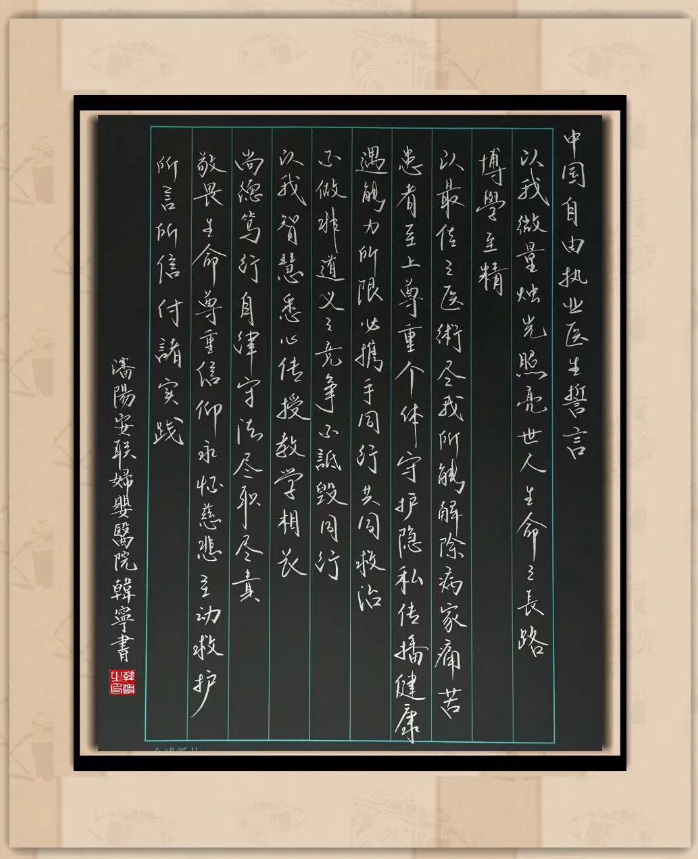 中国自由执业医生誓言
以我微量烛光照亮世人生命之長路
博學至精
以最佳之医術尽我所能解除病家痛苦
患者至上尊重个体守护隐私传播健康
遇能力所限必携手同行共同救治
不做非道义之竞争不詆毁同行
以我智慧悉心传授教学相长
尚德笃行自律守法尽职尽责
敬畏生命尊重信仰永怀慈悲主动救护
所言所信付諸实践
瀋陽安联婦嬰醫院韓寧書